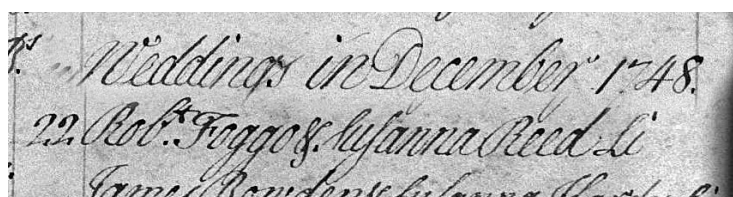 Weddings in December 1748.
22. Robt. Foggo & Susanna Reed Li
James Bowden & Susanna